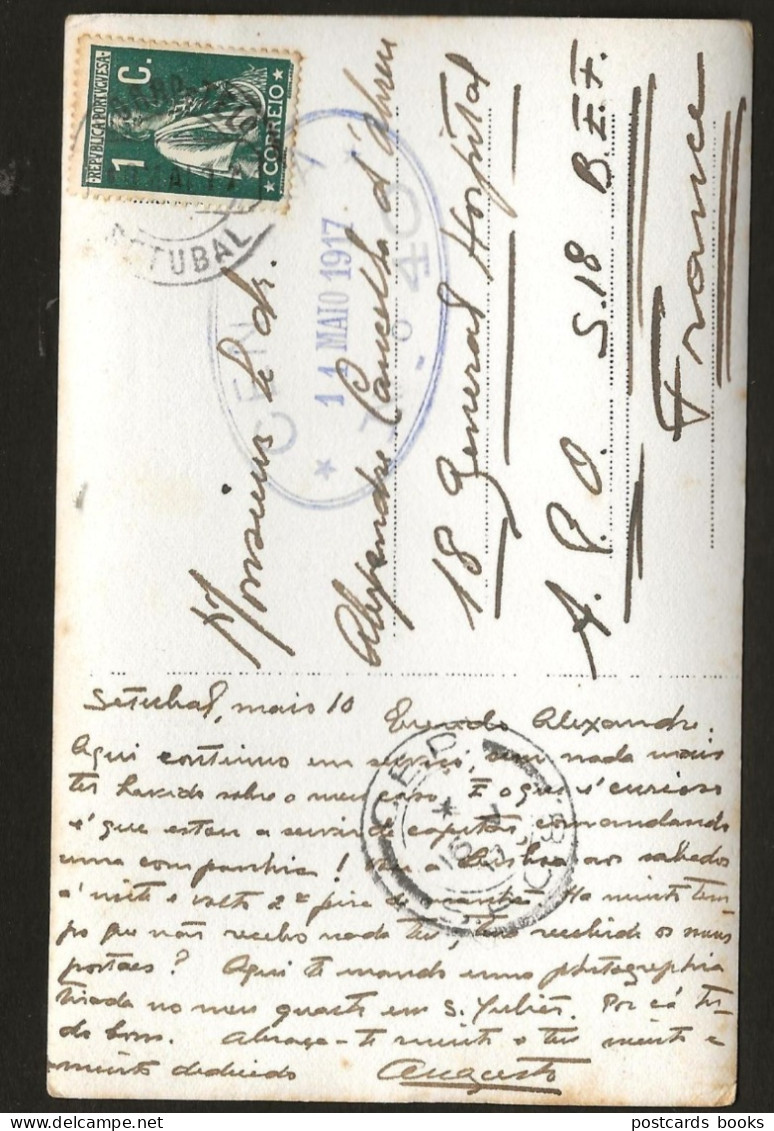 REPUBLICA PORTUGUESA
1 C.
CORREIO
SETUBAL
CEN
11 MAIO 1917
40
Monsieur le dr.
Alexandre Cancella d'Abreu
18 General Hospital
A. P. O. S.18 B.E.F.
France
Setubal, maio 10 Querido Alexandre:
Aqui continuo em serviço, sem nada mais
ter havido sobre o meu caso. E o que é curioso
é que estou a servir de capitão, comandando
uma companhia! Vou a Lisboa aos sabados
á noite e volto 2ª feira de manhã. Ha muito tem-
po que não recebo nada teu, tens recebido os meus
postaes? Aqui te mando uma photographia
tirada no meu quarto em S. Julião. Por cá tu-
do bom. Abraça-te muito o teu muito e
muito dedicado Augusto
C.E.P.
postcards books